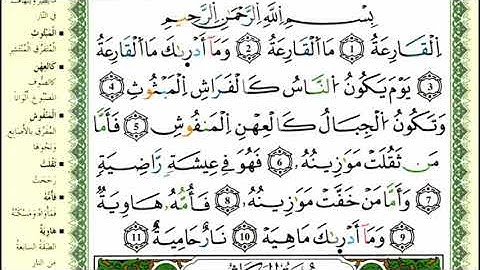 بِسْمِ ٱللَّهِ ٱلرَّحْمَٰنِ ٱلرَّحِيمِ
ٱلْقَارِعَةُ 1 مَا ٱلْقَارِعَةُ 2 وَمَآ أَدْرَىٰكَ مَا ٱلْقَارِعَةُ
3 يَوْمَ يَكُونُ ٱلنَّاسُ كَٱلْفَرَاشِ ٱلْمَبْثُوثِ 4
وَتَكُونُ ٱلْجِبَالُ كَٱلْعِهْنِ ٱلْمَنفُوشِ 5 فَأَمَّا
مَن ثَقُلَتْ مَوَٰزِينُهُۥ 6 فَهُوَ فِى عِيشَةٍ رَّاضِيَةٍ
7 وَأَمَّا مَنْ خَفَّتْ مَوَٰزِينُهُۥ 8 فَأُمُّهُۥ هَاوِيَةٌ
9 وَمَآ أَدْرَىٰكَ مَا هِيَهْ 10 نَارٌ حَامِيَةٌۢ 11
المبثوث
المتفرق المنتشر
كالعهن
كالصوف
المصبوغ ألوانا
المنفوش
المفرق بالأصابع
ونحوها
ثقلت
رجحت
فأمه
فمأواه ومسكنه
هاوية
الطبقة السابعة
من النار